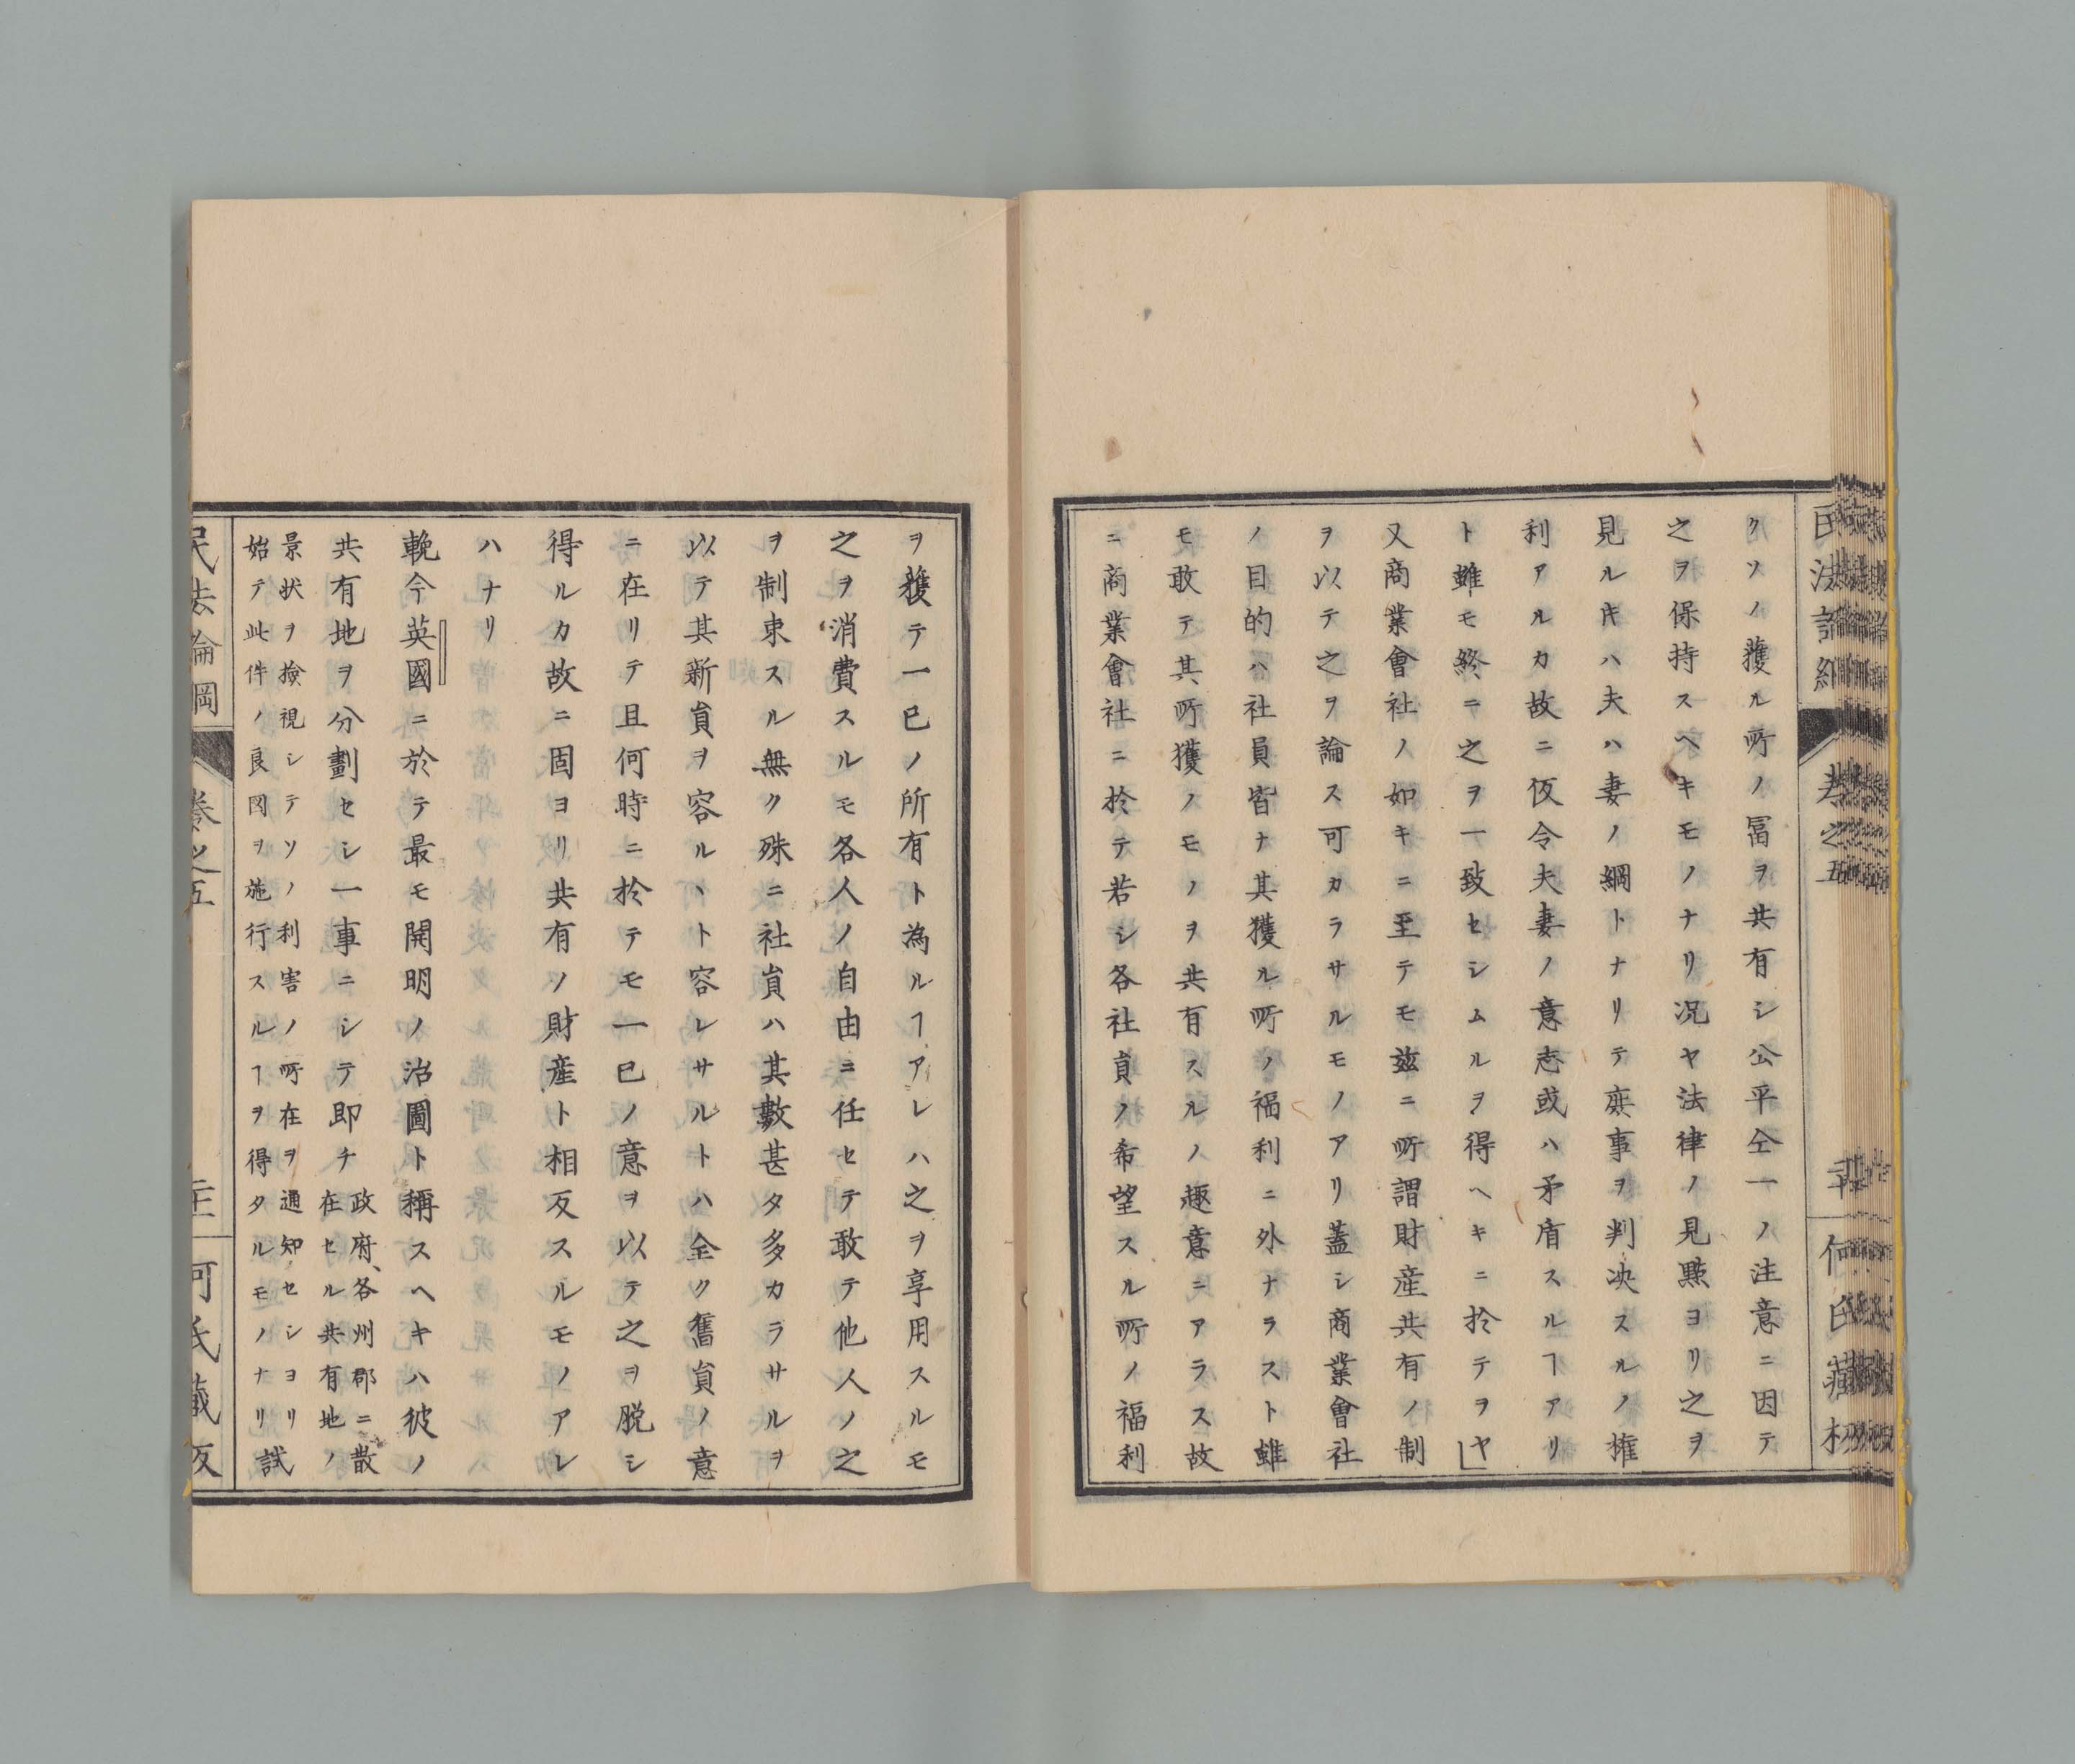 クソノ獲ル所ノ冨ヲ共有シ公平仝一ノ注意ニ因テ
之ヲ保持スヘキモノナリ况ヤ法律ノ見㸃ヨリ之ヲ
見ルキハ夫ハ妻ノ綱トナリテ庶事ヲ判决スルノ権
利アルカ故ニ仮令夫妻ノ意志或ハ矛盾スルヿアリ
ト雖モ終ニ之ヲ一致セシムルヲ得ヘキニ於テヲヤ」
又商業會社ノ如キニ至テモ茲ニ所謂財産共有ノ制
ヲ以テ之ヲ論ス可カラサルモノアリ蓋シ商業會社
ノ目的ハ社員皆ナ其獲ル所ノ福利ニ外ナラスト雖
モ敢テ其所獲ノモノヲ共有スルノ趣意ニアラス故
ニ商業會社ニ於テ若シ各社員ノ希望スル所ノ福利
ヲ獲テ一己ノ所有ト為ルヿアレハ之ヲ享用スルモ
之ヲ消費スルモ各人ノ自由ニ任セテ敢テ他人ノ之
ヲ制束スル無ク殊ニ社員ハ其數甚タ多カラサルヲ
以テ其新員ヲ容ルヽト容レサルトハ全ク舊員ノ意
ニ在リテ且何時ニ於テモ一己ノ意ヲ以テ之ヲ脱シ
得ルカ故ニ固ヨリ共有ノ財産ト相反スルモノアレ
ハナリ
輓今英國ニ於テ最モ開明ノ治圖ト稱スヘキハ彼ノ
共有地ヲ分劃セシ一事ニシテ即チ政府、各州郡ニ散
在セル共有地ノ
景状ヲ撿視シテソノ利害ノ所在ヲ通知セシヨリ
始テ此件ノ良図ヲ施行スルヿヲ得タルモノナリ試
民法論綱
卷之五
何氏藏板